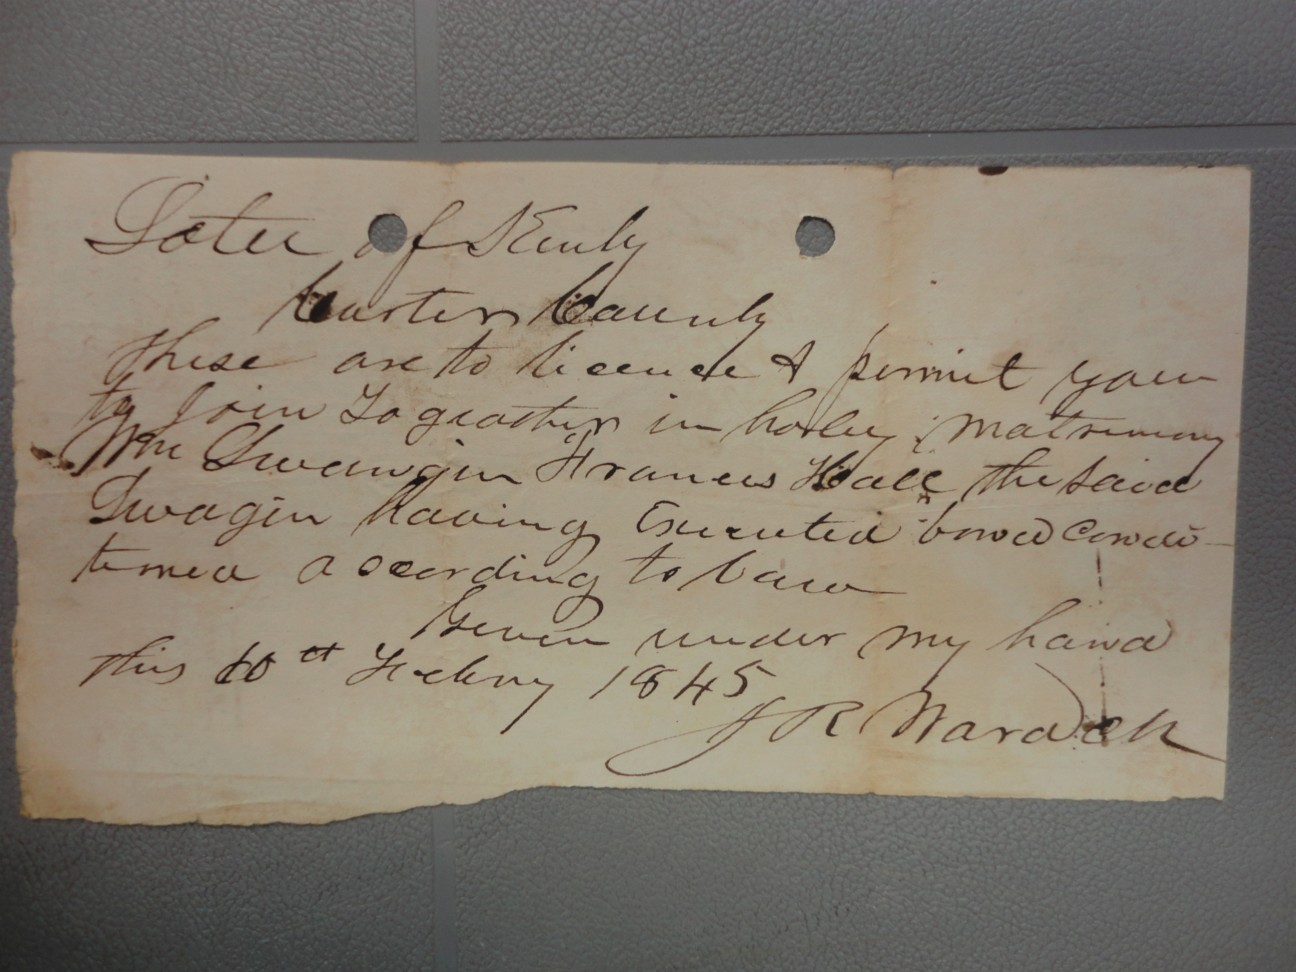 State of Kenty
Carter County
these are to licence & permit you
to Join Togeather in holey matrimony
Wm Swangin Frances Hall the said
Swagin having Executed bond condi-
tioned according to law
Given under my hand
this 10th Febry 1845
J R Ward ck